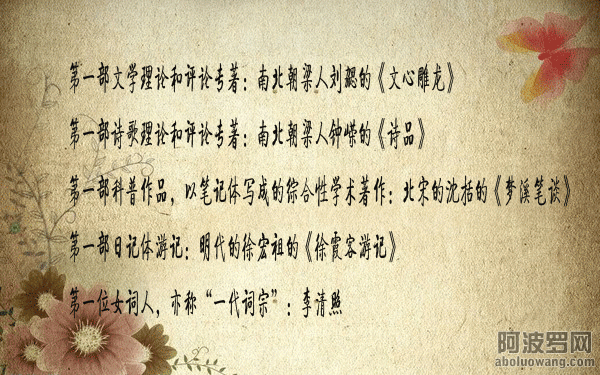 第一部文学理论和评论专著：南北朝梁人刘勰的《文心雕龙》
第一部诗歌理论和评论专著：南北朝梁人钟嵘的《诗品》
第一部科普作品，以笔记体写成的综合性学术著作：北宋的沈括的《梦溪笔谈》
第一部日记体游记：明代的徐宏祖的《徐霞客游记》
第一位女词人，亦称“一代词宗”：李清照
阿波罗网
aboluowang.com